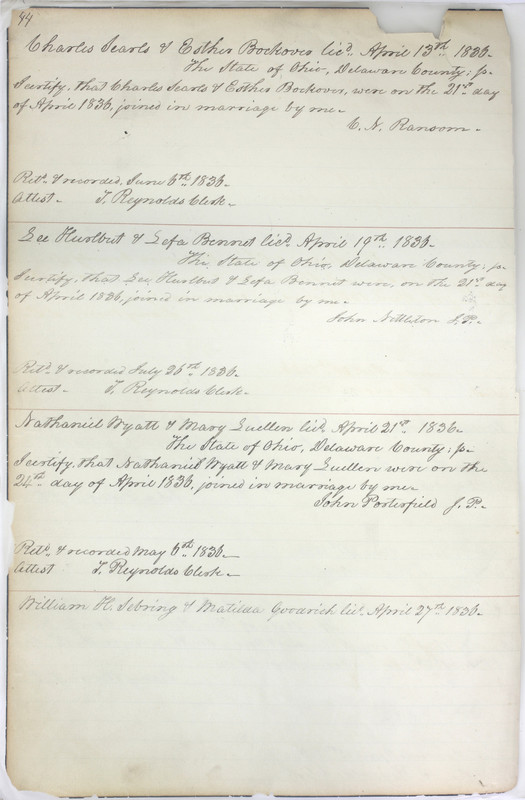 44
Charles Searls & Esther Bockover lic.d April 13th 1836.
The State of Ohio, Delaware County; ss.
I certify, that Charles Searls & Esther Bockover, were on the 21st day
of April 1836, joined in marriage by me.
C. N. Ransom.
Ret.d & recorded, June 6th 1836.
Attest. T. Reynolds Clerk.
Lee Hurlbut & Lefa Bennet lic.d April 19th 1836.
The State of Ohio, Delaware County; ss.
I certify, that Lee Hurlbut & Lefa Bennet were, on the 21st day
of April 1836, joined in marriage by me.
John Nettleton J.P.
Ret.d & recorded July 26th 1836.
Attest. T. Reynolds Clerk.
Nathaniel Wyatt & Mary Luellen lic.d April 21st 1836.
The State of Ohio, Delaware County; ss.
I certify, that Nathaniel Wyatt & Mary Luellen were on the
24th day of April 1836, joined in marriage by me.
John Porterfield J.P.
Ret.d & recorded May 6th 1836.
Attest T. Reynolds Clerk.
William H. Sebring & Matilda Goodrich lic.d April 27th 1836.